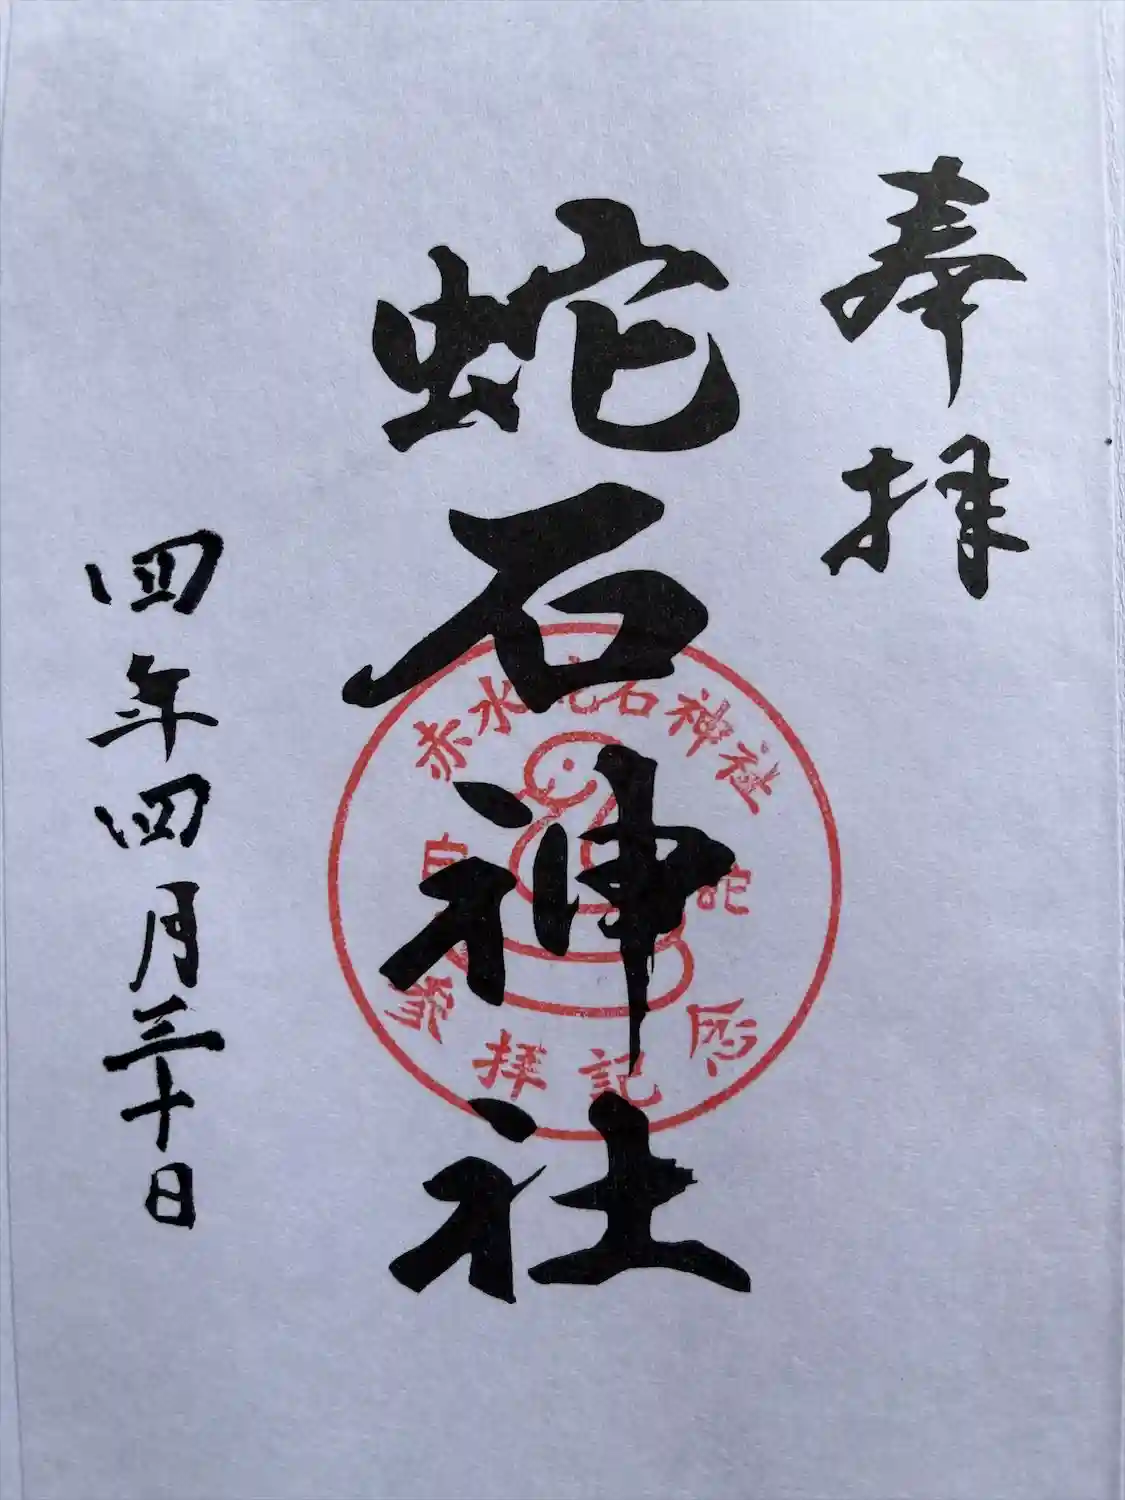 奉拝
蛇石神社
赤水蛇石神社
白蛇
参拝記念
四年四月三十日